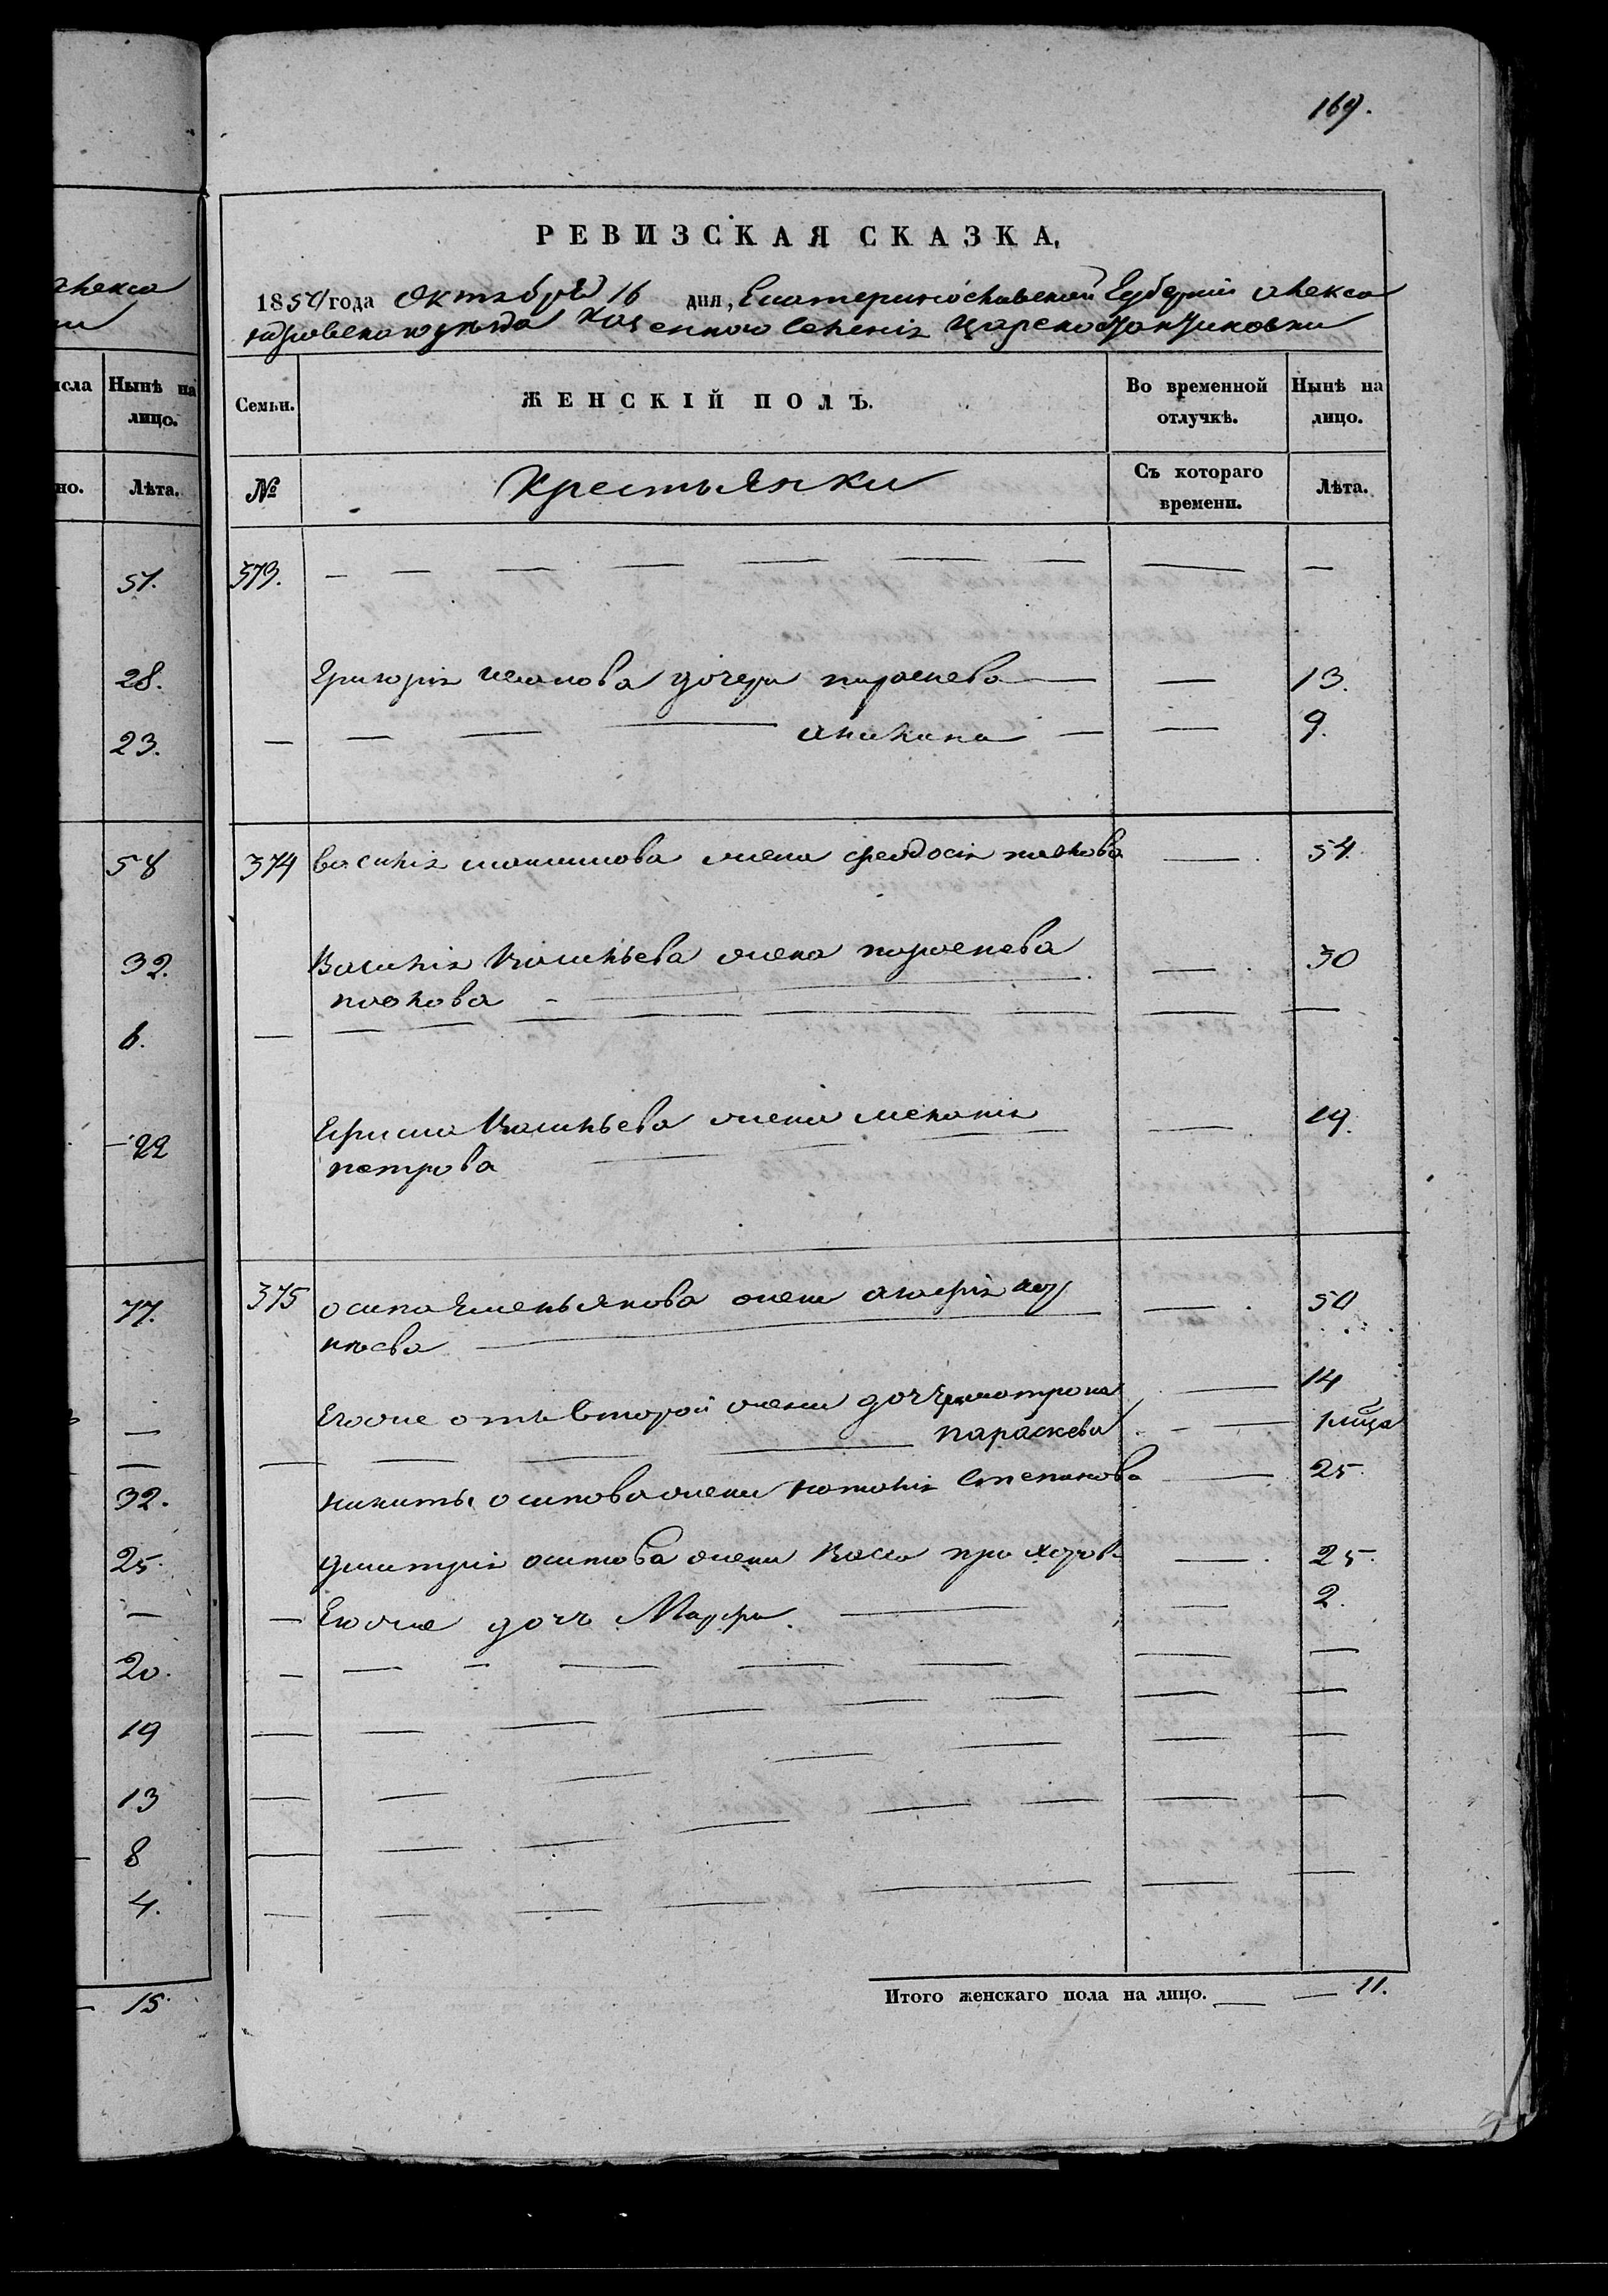 169.
РЕВИЗСКАЯ СКАЗКА,
1850 года Октября 16 дня, Екатеринославской Губерніи Алекса
ндровскаго уѣзда Казенного Селенія Царено
Семьи. ЖЕНСКІЙ ПОЛЪ. Во временной отлучкѣ. Нынѣ на лицо.
№ Крестьянки Съ котораго времени. Лѣта.
373. — — — — — — — — —
Григорія Иванова дочери параскева — — 13.
— — — — акилина — — 9.
374 василія максимова жена феодосія павлова — 54.
Василія Васильева жена параскева — 30
павлова — — —
— — — — — — — — — —
Ефима Васильева жена меланія — 19.
петрова —
375 осипа Емельянова жена агафія — 50
Егоже отъ второй жены дочери матрона — 14
— — — — параскева — — 1 мѣсяц
никиты осипова жена наталія Степанова — 25
дмитрія осипова жена Васса прохорова — 25.
— Егоже дочь Мавра. — — 2.
Итого женскаго пола на лицо. — — 11.
алекса
исла Нынѣ на лицо.
но. Лѣта.
51.
28.
23.
58
32.
6.
22
77.
—
—
32.
25.
—
20.
19
13
8
4.
15.